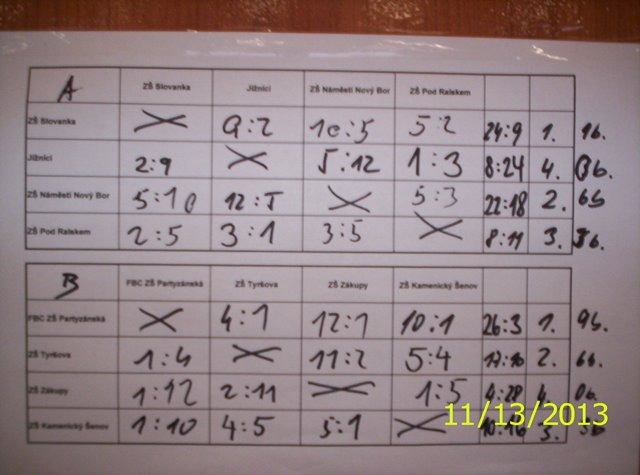 A ZŠ Slovanka Jižníci ZŠ Náměstí Nový Bor ZŠ Pod Ralskem
ZŠ Slovanka 9:2 10:5 5:2 24:9 1.
Jižníci 2:9 5:12 1:3 8:24 4. 0b.
ZŠ Náměstí Nový Bor 5:10 12:5 5:3 22:18 2. 6b
ZŠ Pod Ralskem 2:5 3:1 3:5 8:11 3. 3b.
B FBC ZŠ Partyzánská ZŠ Tyršova ZŠ Zákupy ZŠ Kamenický Šenov
FBC ZŠ Partyzánská 4:1 12:1 10:1 26:3 1. 9b.
ZŠ Tyršova 1:4 11:2 5:4 17:10 2. 6b.
ZŠ Zákupy 1:12 2:11 1:5 4:28 4. 0b.
ZŠ Kamenický Šenov 1:10 4:5 5:1 10:16 3. 3b
11/13/2013